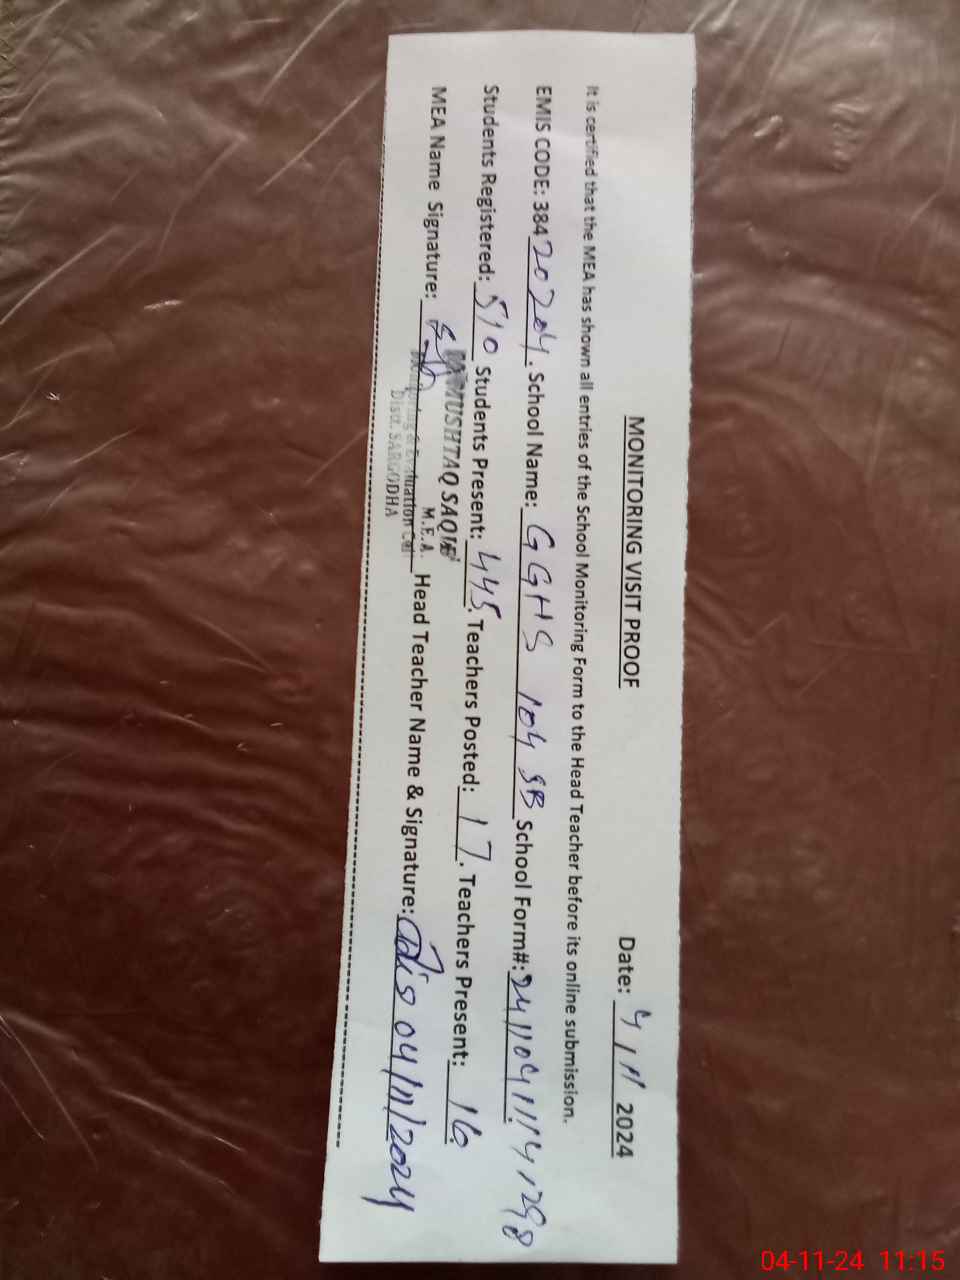 MONITORING VISIT PROOF
Date: 4 / 11 2024
It is certified that the MEA has shown all entries of the School Monitoring Form to the Head Teacher before its online submission.
EMIS CODE: 38420204. School Name: GGHS 104 SB School Form#: 241104111141298
Students Registered: 510 Students Present: 445. Teachers Posted: 17. Teachers Present: 16
MUSHTAQ SAQIB
M.E.A.
MEA Name Signature: Head Teacher Name & Signature: 04/11/2024
Monitoring & Evaluation Cell
Distt. SARGODHA
04-11-24 11:15